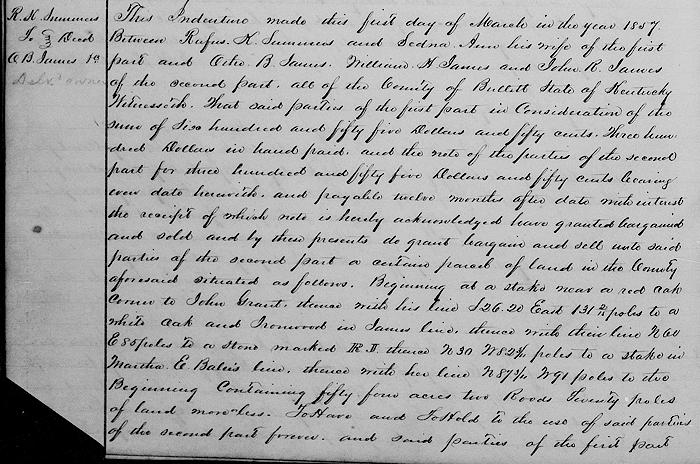 R. K. Summers
To } Deed
O B. James &c
Delv.d owner
This Indenture made this first day of March in the year 1857.
Between Rufus. K. Summers and Sedna. Ann his wife of the first
part and Otho. B James. William. H James and John. R. James
of the second part. all of the County of Bullitt State of Kentucky
Witnesseth. That said parties of the first part in Consideration of the
sum of Six hundred and fifty five Dollars and fifty cents. Three hun
dred Dollars in hand paid. and the note of the parties of the second
part for three hundred and fifty five Dollars and fifty cents bearing
even date herewith. and payable twelve months after date with interest
the receipt of which note is hereby acknowledged have granted bargained
and sold and by these presents do grant bargain and sell unto said
parties of the second part a certain parcel of land in the County
aforesaid situated as follows. Beginning at a stake near a red oak
corner to John Grant. thence with his line S 26.20 East 131 poles to a
white oak and Ironwood in James line, thence with their line N 60
E 85 poles to a stone marked thence N 30 W 82 3/4 poles to a stake in
Martha. E. line. thence with her line N 87 3/4 W 91 poles to the
Beginning Containing fifty four acres two Roods Seventy poles
of land more or less. To Have and To Hold to the use of said parties
of the second part forever. and said parties of the first part